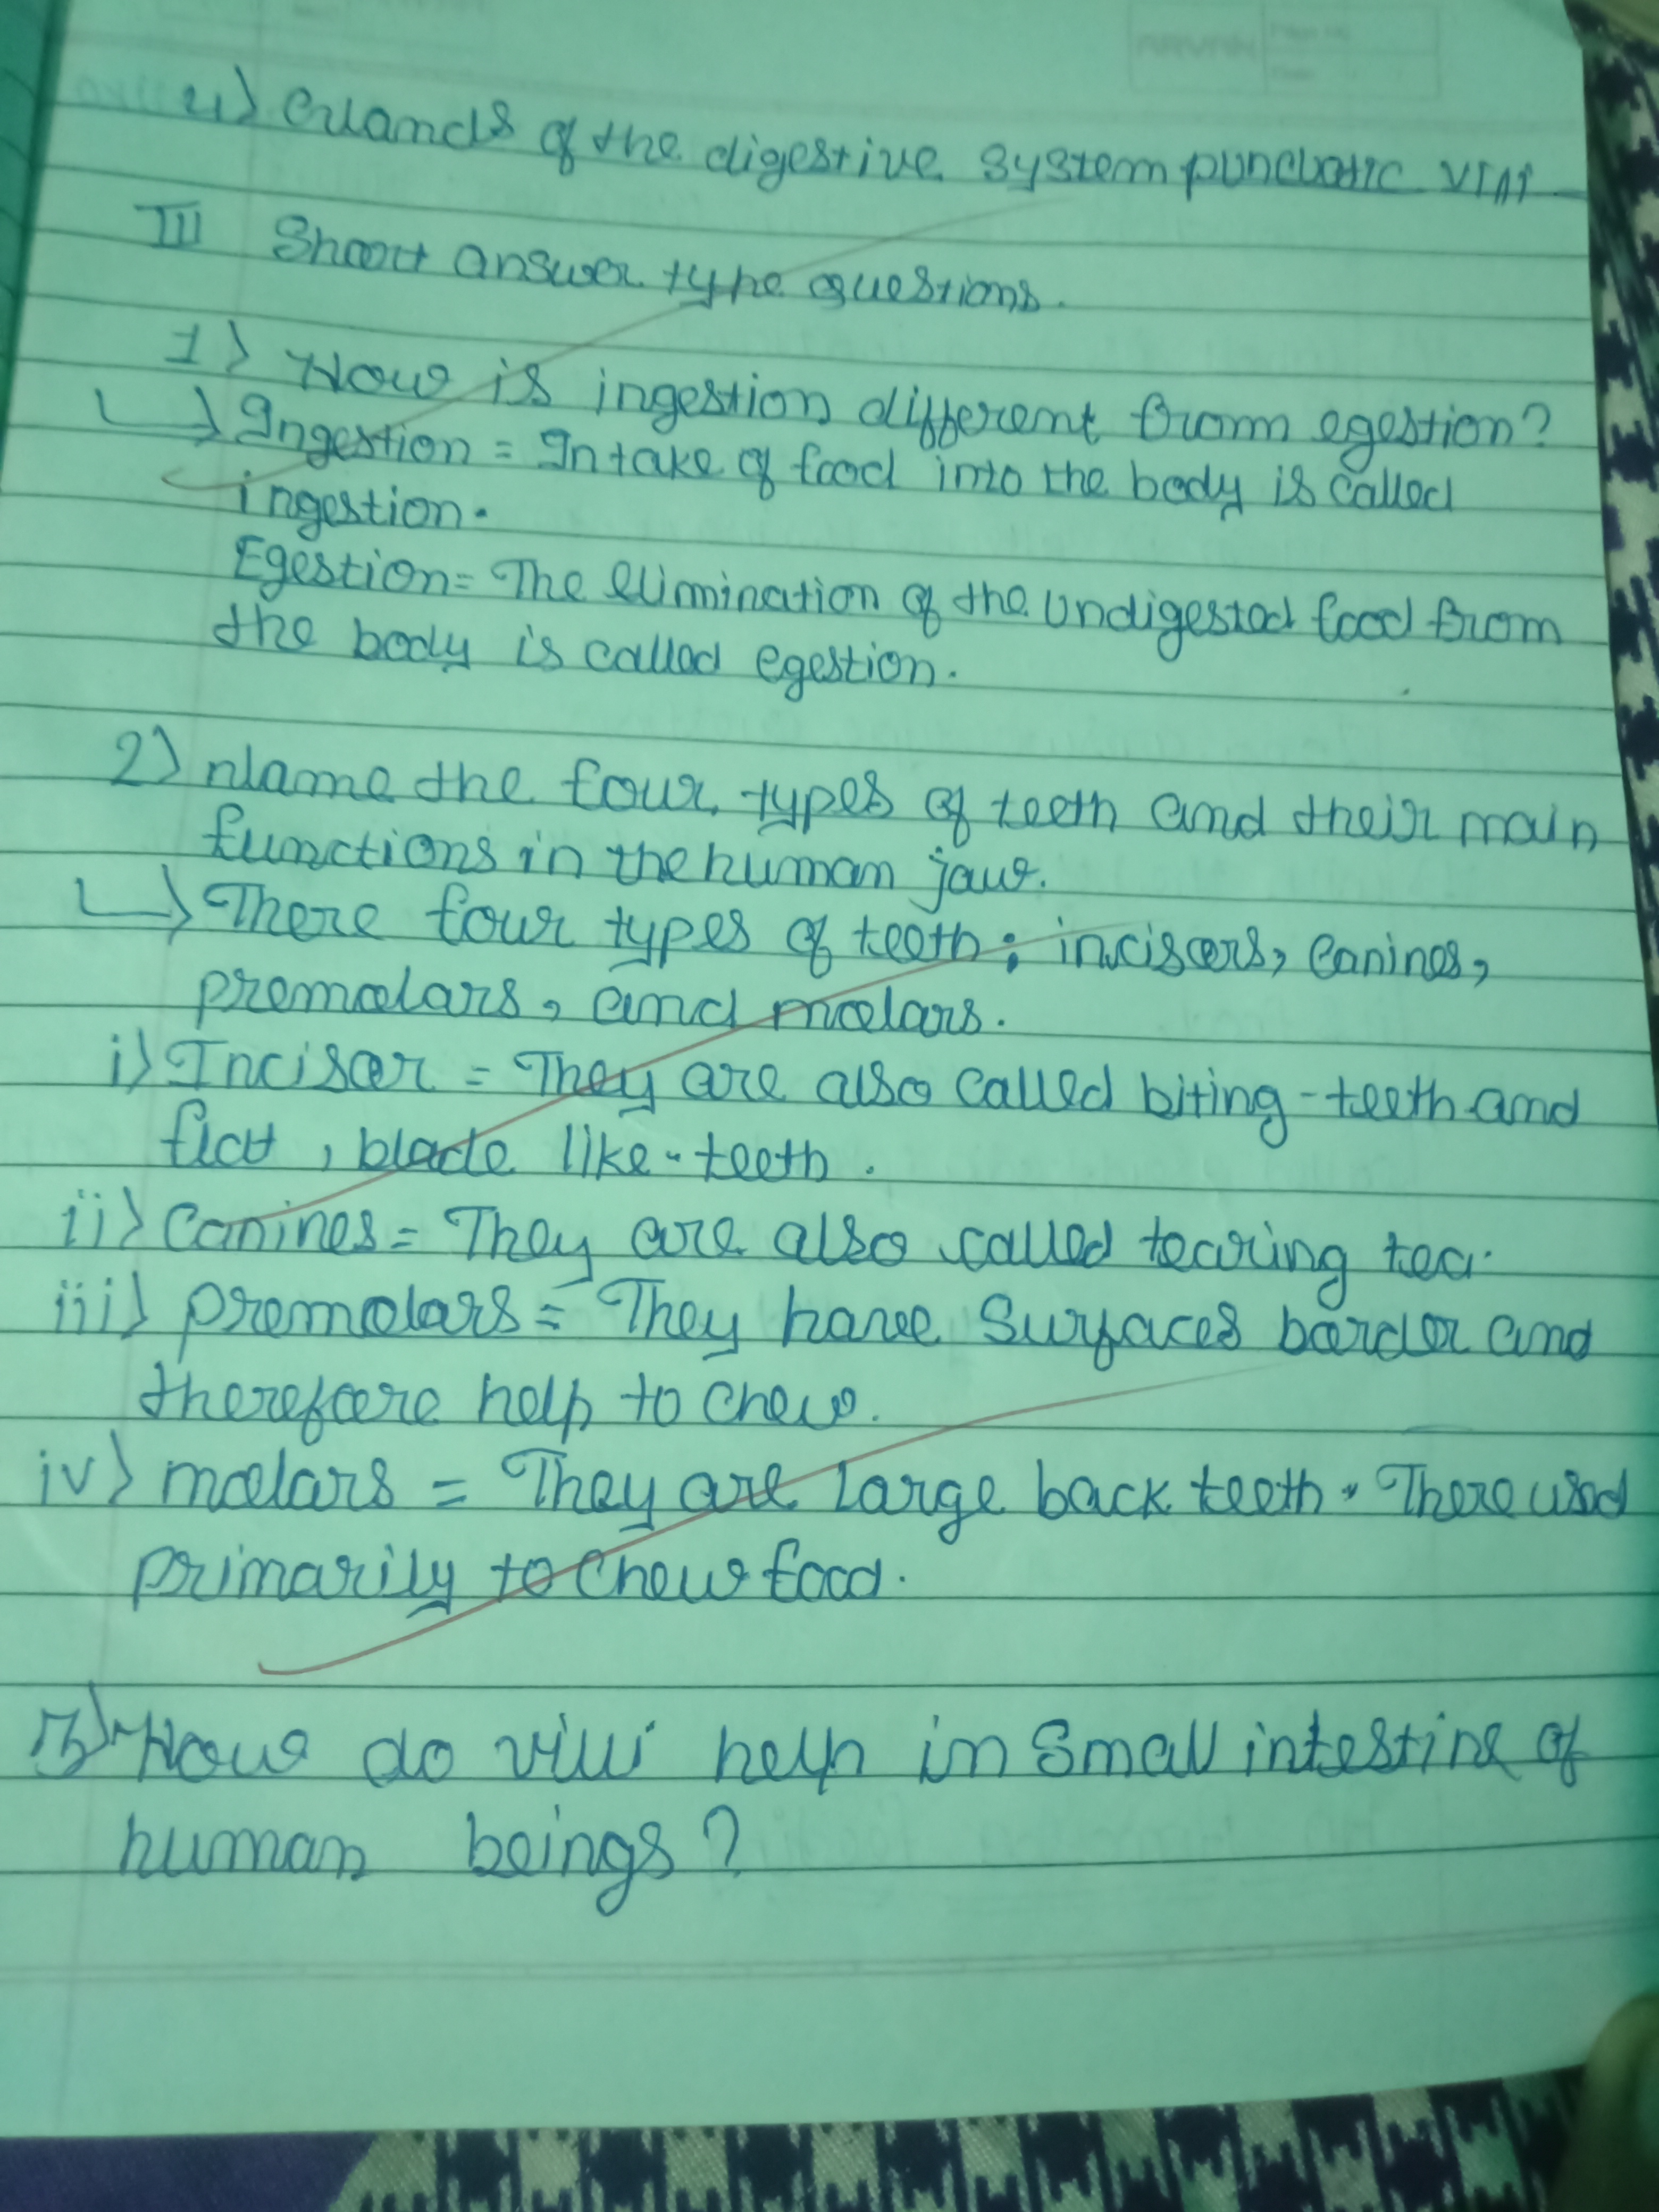 4) Glands of the digestive system
III Short answer type questions.
1) How is ingestion different from egestion?
Ingestion = Intake of food into the body is called
ingestion.
Egestion = The elimination of the undigested food from
the body is called egestion.
2) Name the four types of teeth and their main
functions in the human jaw.
There four types of teeth; incisors, canines,
premolars, and molars.
i) Incisor = They are also called biting-teeth and
flat, blade like-teeth.
ii) Canines = They are also called tearing tea.
iii) premolars = They have surfaces border and
therefore help to chew.
iv) molars = They are large back teeth. There used
primarily to chew food.
3) How do villi help in small intestine of
human beings?